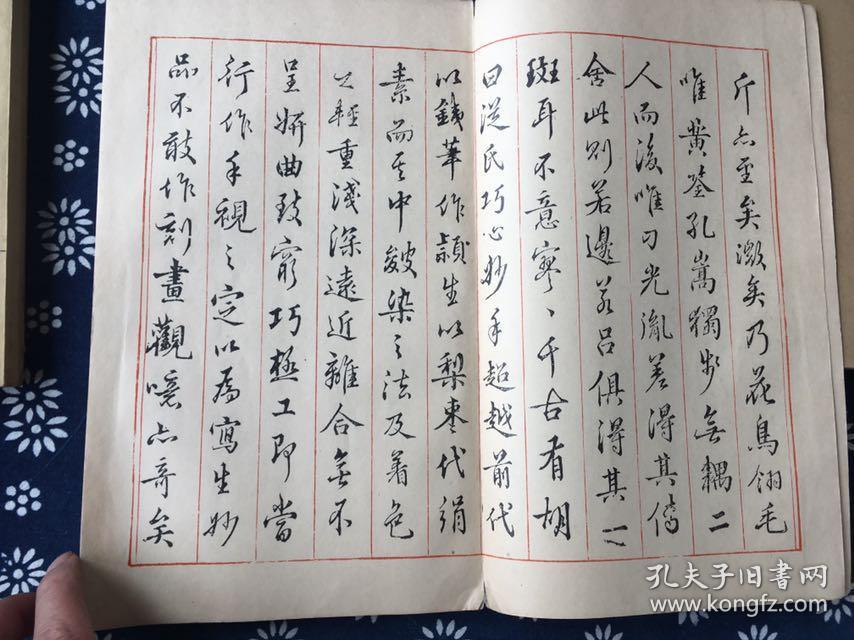 斤亦至矣微矣乃花鳥翎毛
唯黄荃孔嵩獨步無耦二
人而後唯刁光胤差得其傳
舍此則若邊若吕俱得其一
斑耳不意寥〻千古有胡
曰從氏巧心妙手超越前代
以鐵筆作穎生以梨棗代絹
素而其中皴染之法及着色
之輕重淺深遠近離合無不
呈妍曲致窮巧極工即當
行作手視之定以為寫生妙
品不敢作刻畫觀噫亦奇矣
孔夫子旧书网
www.kongfz.com